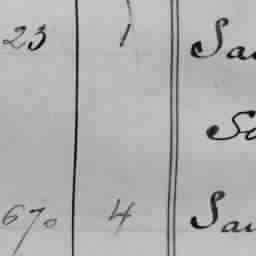 23 1 Sa
So
670 4 Sau